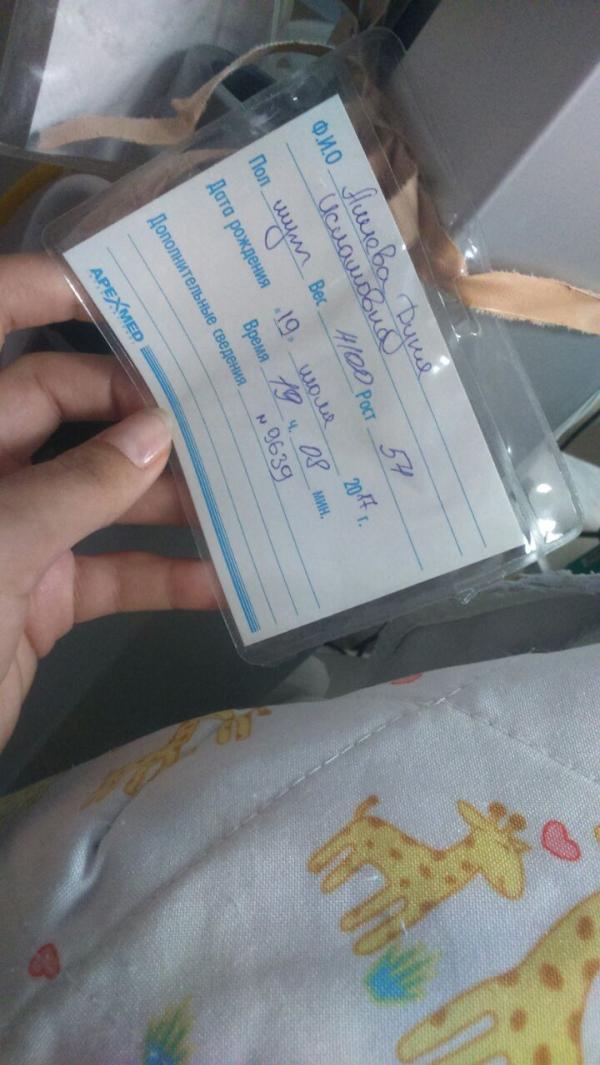 Ф.И.О Алиева Дуня
Исламовна
Пол муж Вес 4100 Рост 54
Дата рождения 19 июля 2017 г.
Время 19 ч. 08 мин.
Дополнительные сведения N 9639
APEXMED